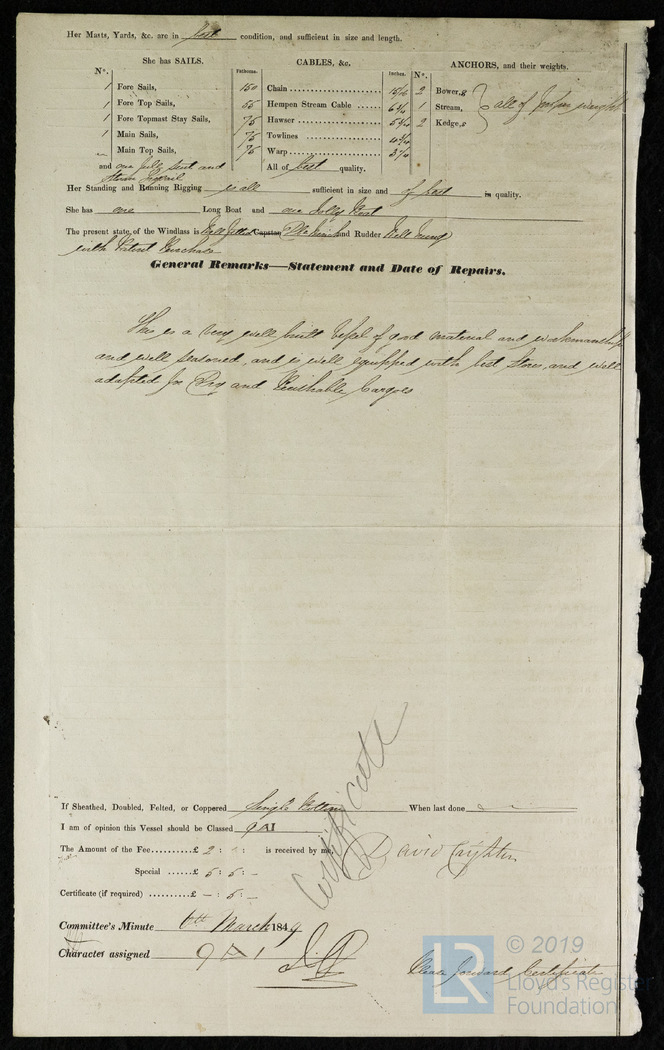 Her Masts, Yards, &c. are in best condition, and sufficient in size and length.
She has SAILS. CABLES, &c. ANCHORS, and their weights.
Nº. Fathoms. Inches. Nº.
1 Fore Sails, 150 Chain 15/16 2 Bower,s
1 Fore Top Sails, Hempen Stream Cable 1 Stream, all of proper weight
1 Fore Topmast Stay Sails, 75 Hawser 2 Kedge,s
1 Main Sails, 75 Towlines
Main Top Sails, 75 Warp
and one and All of best quality.
Her Standing and Running Rigging is all sufficient in size and of best in quality.
She has one Long Boat and one Jolly Boat
The present state of the Windlass is Well fitted Capstan and Rudder Well hung
with Patent Purchase
General Remarks—Statement and Date of Repairs.
She is a very well built Vessel of good material and workmanship
and well seasoned, and is well equipped with best Stores, and well
adapted for Dry and Perishable Cargoes
If Sheathed, Doubled, Felted, or Coppered Single Bottom When last done
I am of opinion this Vessel should be Classed 9 A 1
The Amount of the Fee £ 2 : : is received by me, David
Special £ 5 : 5 : –
Certificate (if required) £ – : 5 : –
Certificate
Committee's Minute 6th March 1849
Character assigned 9 A 1
Please forward Certificate
LR © 2019
Lloyd's Register
Foundation